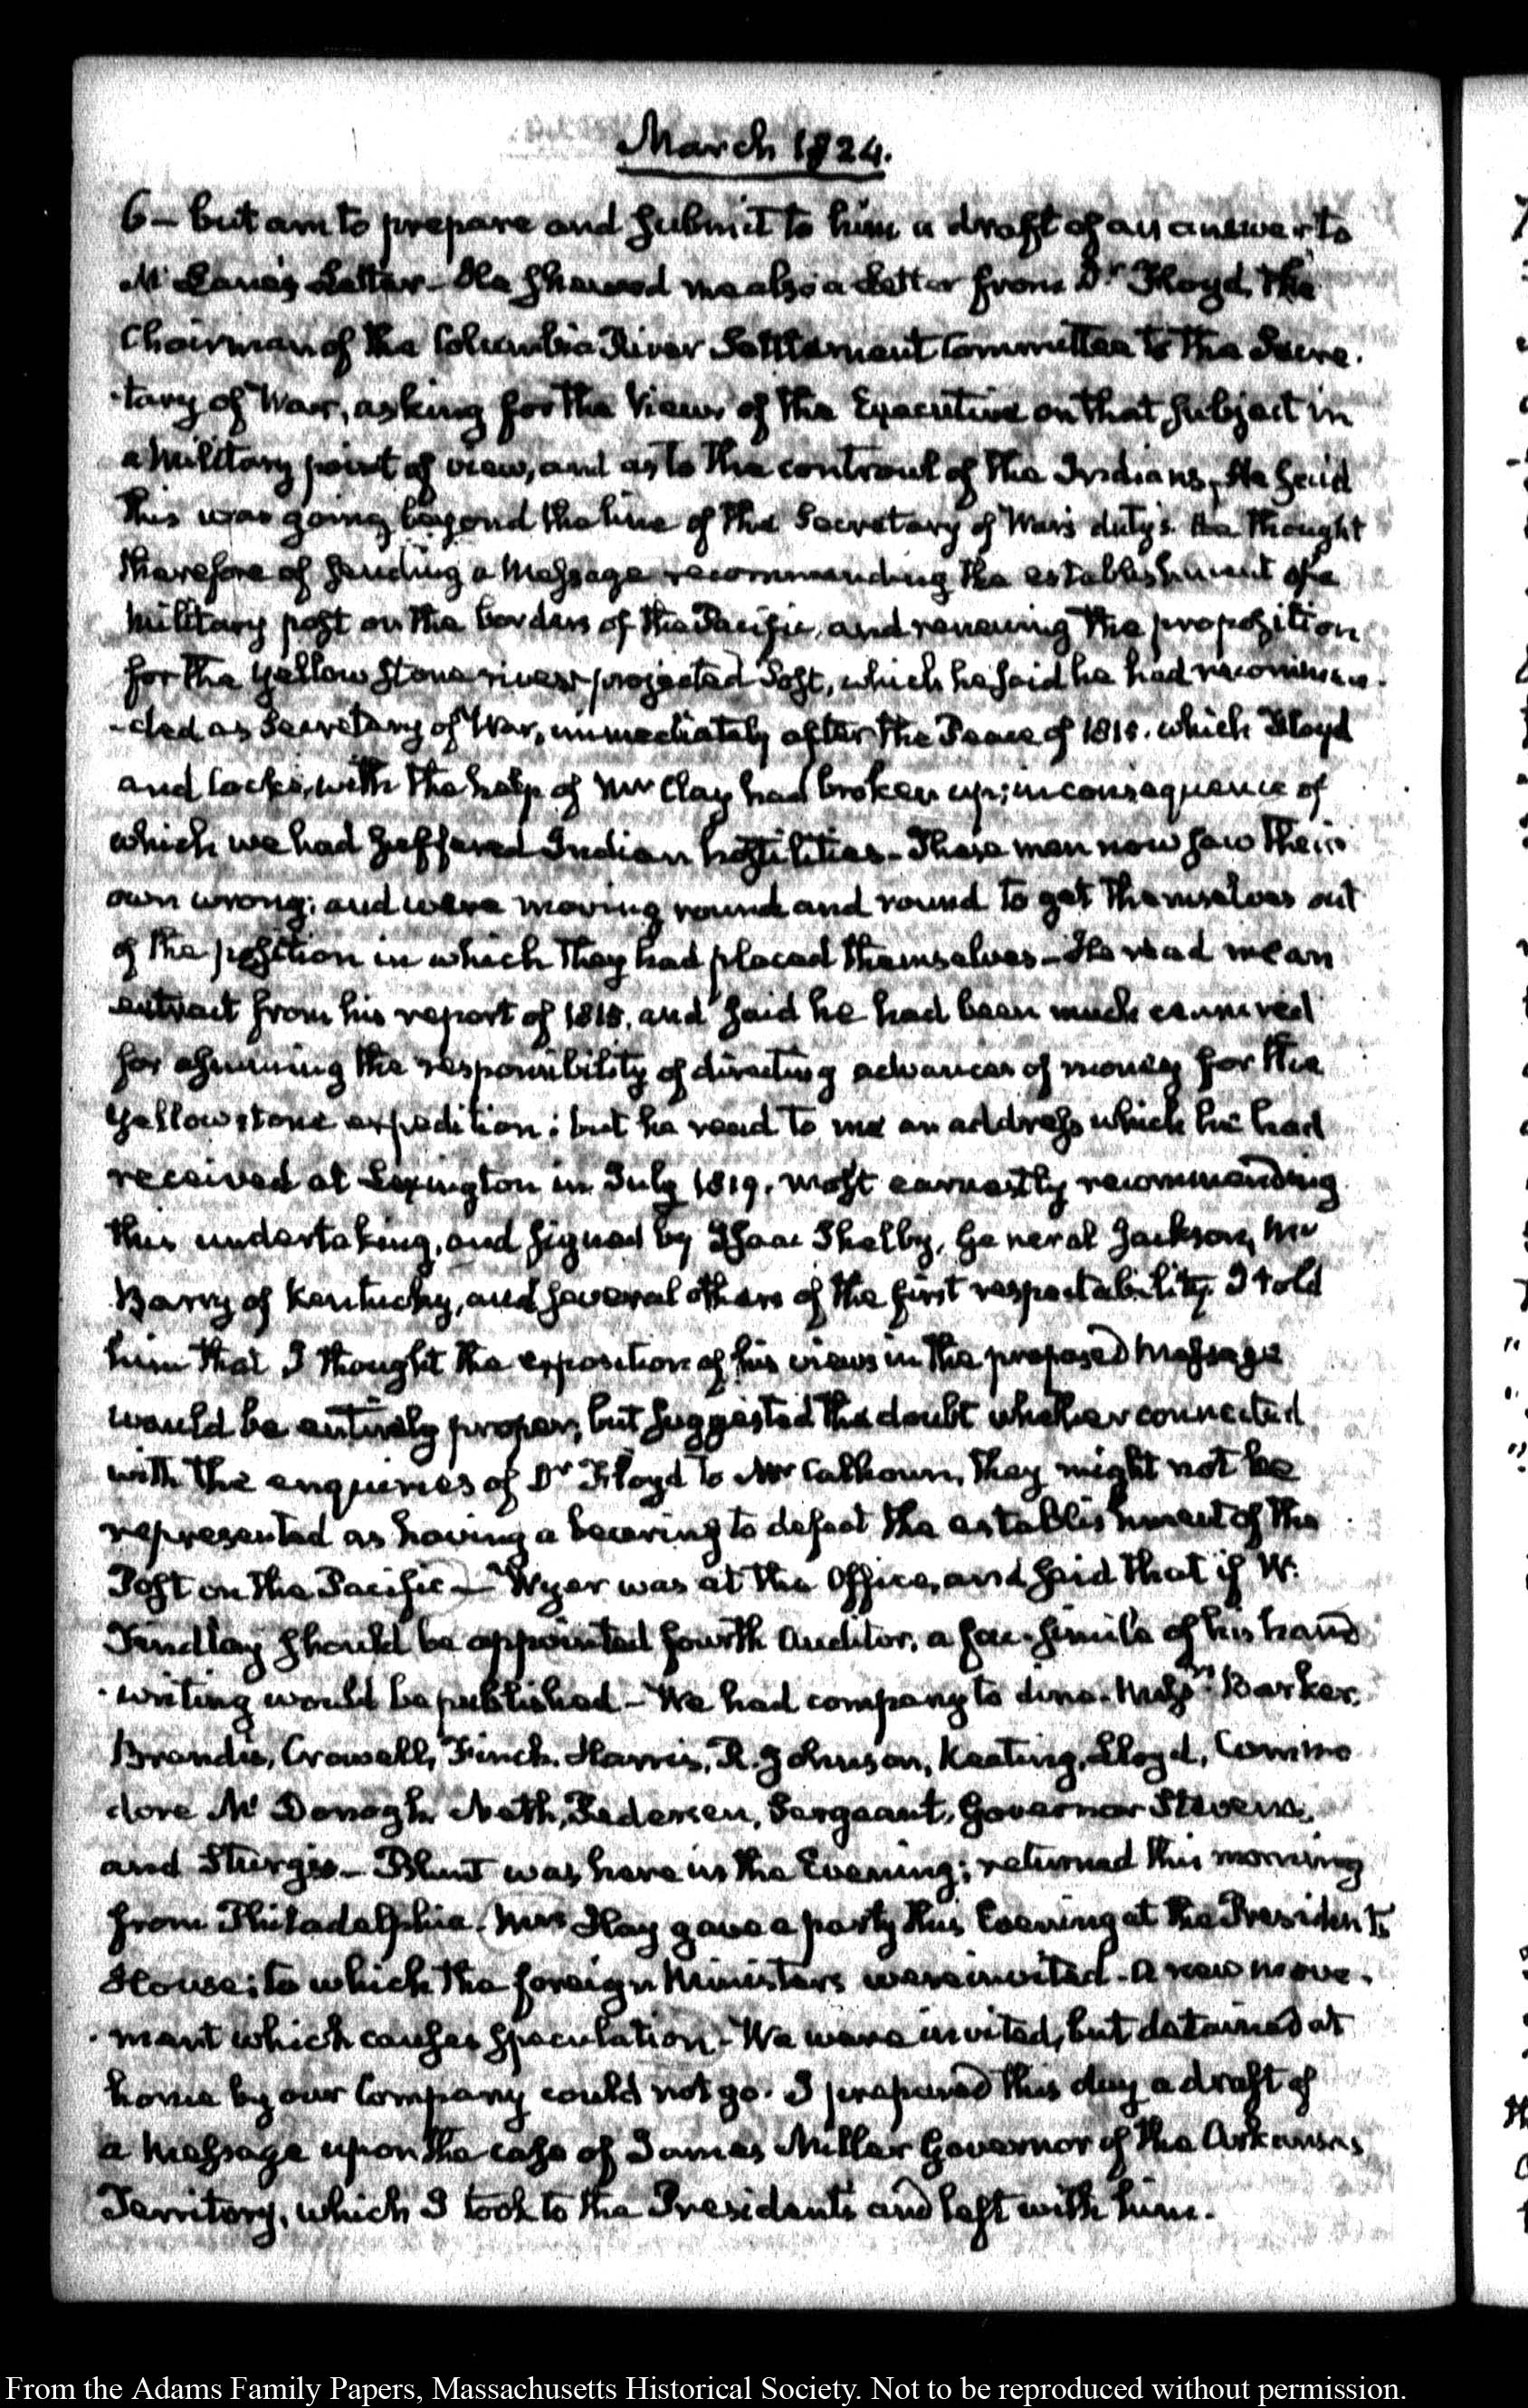 March 1824.
6 — but am to prepare and submit to him a draft of an answer to
Mc Lane's Letter — He shewed me also a Letter from Dr Floyd, the
Chairman of the Columbia River Settlement Committee to the Secre-
-tary of War, asking for the Views of the Executive on that subject in
a Military point of view, and as to the controul of the Indians, He said
this was going beyond the line of the Secretary of War's duty's. He thought
therefore of sending a Message recommending the establishment of a
Military post on the borders of the Pacific, and renewing the proposition
for the Yellow Stone river projected Post, which he said he had recommen-
-ded as Secretary of War, immediately after the Peace of 1815. which Floyd
and Cocke, with the help of Mr Clay had broken up; in consequence of
which we had suffered Indian hostilities — These men now saw their
own wrong; and were moving round and round to get themselves out
of the position in which they had placed themselves — He read me an
extract from his report of 1815. and said he had been much censured
for assuming the responsibility of directing advances of money for the
Yellow stone expedition; but he read to me an address which he had
received at Lexington in July 1819. most earnestly recommending
this undertaking, and signed by Isaac Shelby, General Jackson, Mr
Barry of Kentucky, and several others of the first respectability. I told
him that I thought the exposition of his views in the proposed Message
would be entirely proper; but suggested the doubt whether connected
with the enquiries of Dr Floyd to Mr Calhoun, they might not be
represented as having a bearing to defeat the establishment of the
Post on the Pacific — Wyer was at the Office, and said that if W.
Findlay should be appointed fourth Auditor, a fac-simile of his hand
-writing would be published — We had company to dine. Messrs Barker,
Brandis, Crowell, Finch, Harris, R. Johnson, Keating, Lloyd, Commo
dore Mc Donogh Neth, Pedersen, Sergeant, Governor Stevens,
and Sturgis — Blunt was here in the Evening; returned this morning
from Philadelphia. Mrs Hay gave a party this Evening at the President's
House; to which the foreign Ministers were invited — A new move-
-ment which causes speculation — We were invited, but detained at
home by our Company could not go. I prepared this day a draft of
a Message upon the case of James Miller Governor of the Arkansas
Territory, which I took to the President's and left with him.
From the Adams Family Papers, Massachusetts Historical Society. Not to be reproduced without permission.